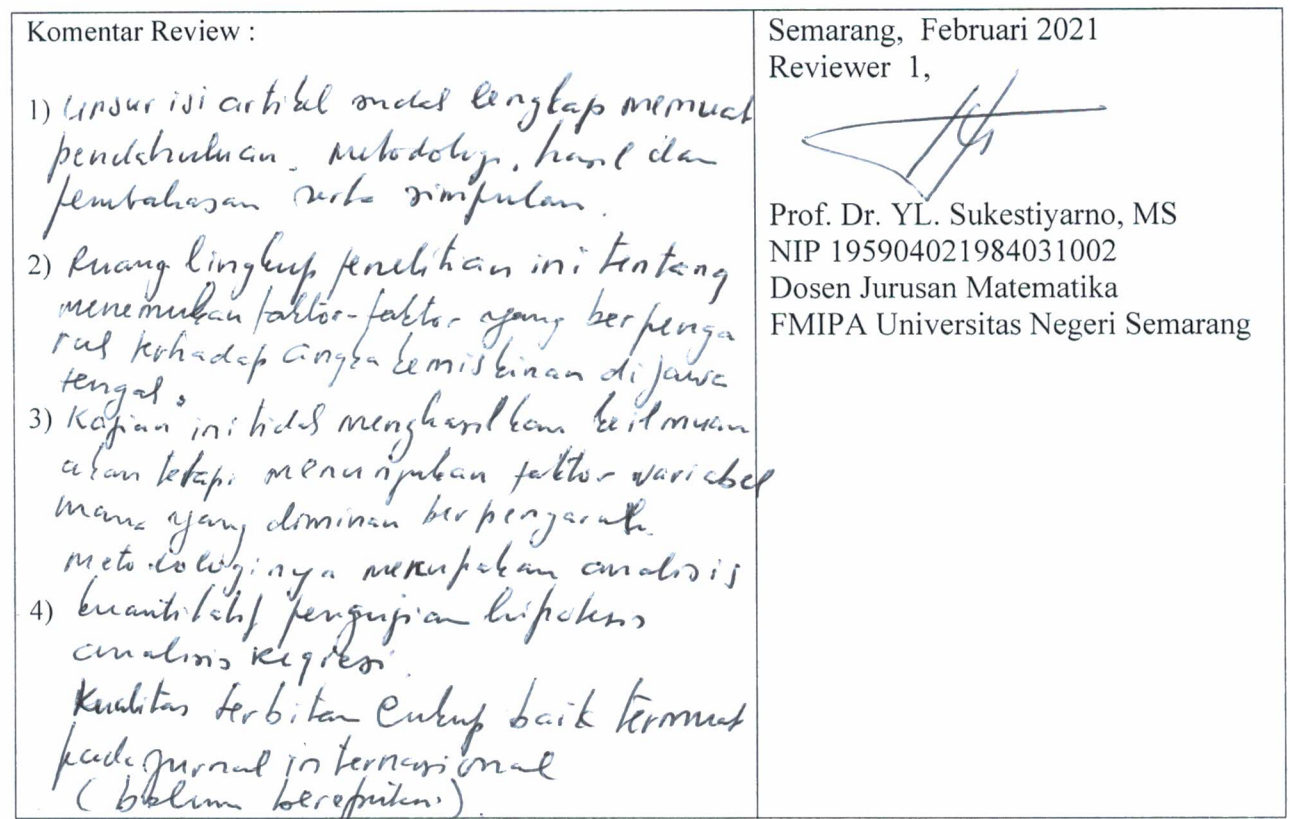 Komentar Review :
1) Unsur isi artikel sudah lengkap memuat
pendahuluan, metodologi, hasil dan
pembahasan serta simpulan.
2) Ruang lingkup penelitian ini tentang
menemukan faktor-faktor yang berpenga
ruh terhadap angka kemiskinan di jawa
tengah.
3) Kajian ini tidak menghasilkan keilmuan
akan tetapi menunjukan faktor variabel
mana yang diminan berpengaruh.
metodologinya merupakan analisis
4) kuantitatif pengujian hipotesis
analisis regresi.
Kualitas terbitan cukup baik termuat
pada jurnal internasional
(belum
Semarang, Februari 2021
Reviewer 1,
Prof. Dr. YL. Sukestiyarno, MS
NIP 195904021984031002
Dosen Jurusan Matematika
FMIPA Universitas Negeri Semarang